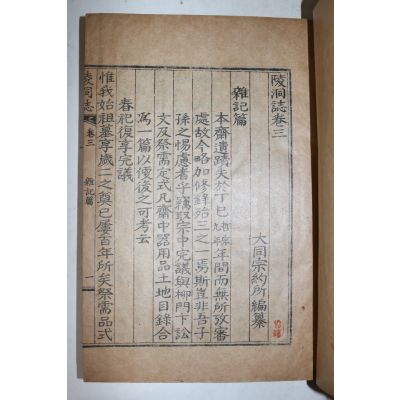 陵洞誌卷三
大同宗約所 編纂
雜記篇
本齋遺蹟失於丁巳年間而無所攷審
處故今略加修錄殆三之一焉斯豈非吾子
孫之惕慮者乎取宗中完議與柳門下訟
文及祭需定式凡齋中器用品土地目錄合
爲一篇以便後之可考云
春祀復享完議
惟我始祖墓享歲二之奠已屢百年所矣祭需品式
陵洞誌 卷三 雜記篇 一